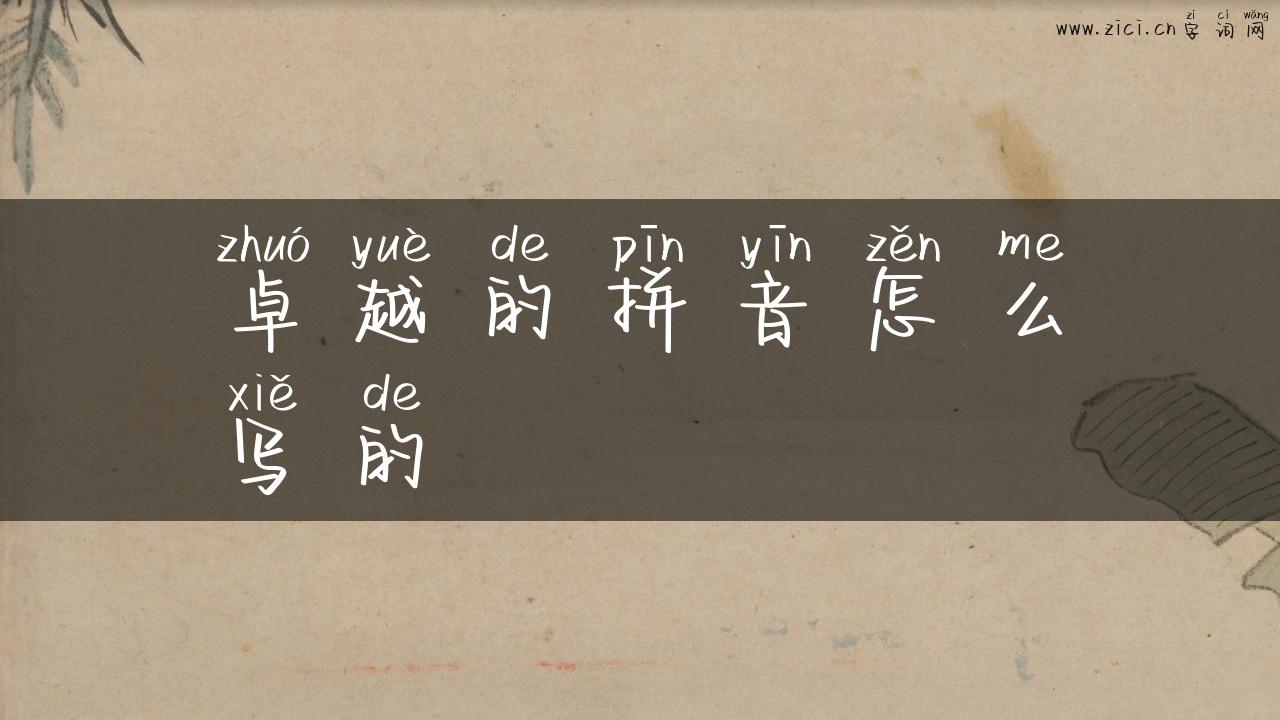 zì cí wǎng
www.zici.cn 字词网
zhuó yuè de pīn yīn zěn me
卓越的拼音怎么
xiě de
写的